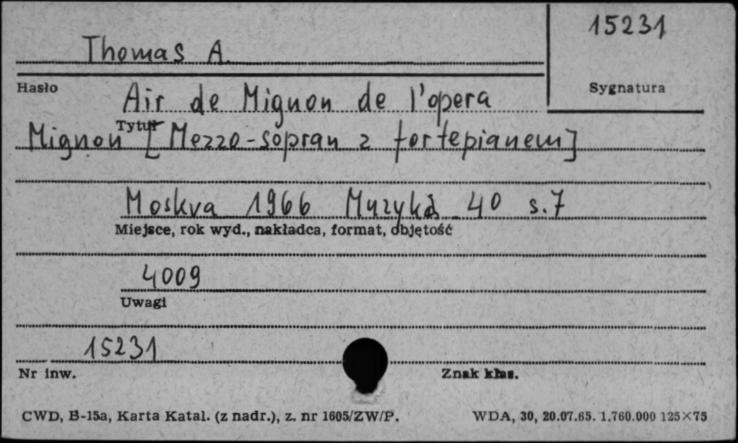 15231
Thomas A.
Hasło
Sygnatura
Air de Mignon de l'opera
Tytuł
Mignon [Mezzo-sopran z fortepianem]
Moskva 1966 Muzyka 4° s. 7
Miejsce, rok wyd., nakładca, format, objętość
4009
Uwagi
15231
Nr inw.
Znak klas.
CWD, B-15a, Karta Katal. (z nadr.), z. nr 1605/ZW/P.
WDA, 30, 20.07.65. 1.760.000 125×75